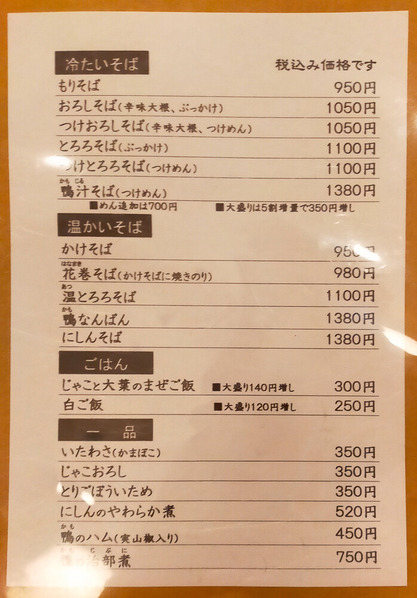 冷たいそば 税込み価格です
もりそば 950円
おろしそば(辛味大根、ぶっかけ) 1050円
つけおろしそば(辛味大根、つけめん) 1050円
とろろそば(ぶっかけ) 1100円
つけとろろそば(つけめん) 1100円
かも じる
鴨汁そば(つけめん) 1380円
■めん追加は700円 ■大盛りは5割増量で350円増し
温かいそば
かけそば 950円
はなまき
花巻そば(かけそばに焼きのり) 980円
あつ
温とろろそば 1100円
かも
鴨なんばん 1380円
にしんそば 1380円
ごはん
じゃこと大葉のまぜご飯 ■大盛り140円増し 300円
白ご飯 ■大盛り120円増し 250円
一品
いたわさ(かまぼこ) 350円
じゃこおろし 350円
とりごぼういため 350円
にしんのやわらか煮 520円
かも
鴨のハム(実山椒入り) 450円
じぶに
部煮 750円